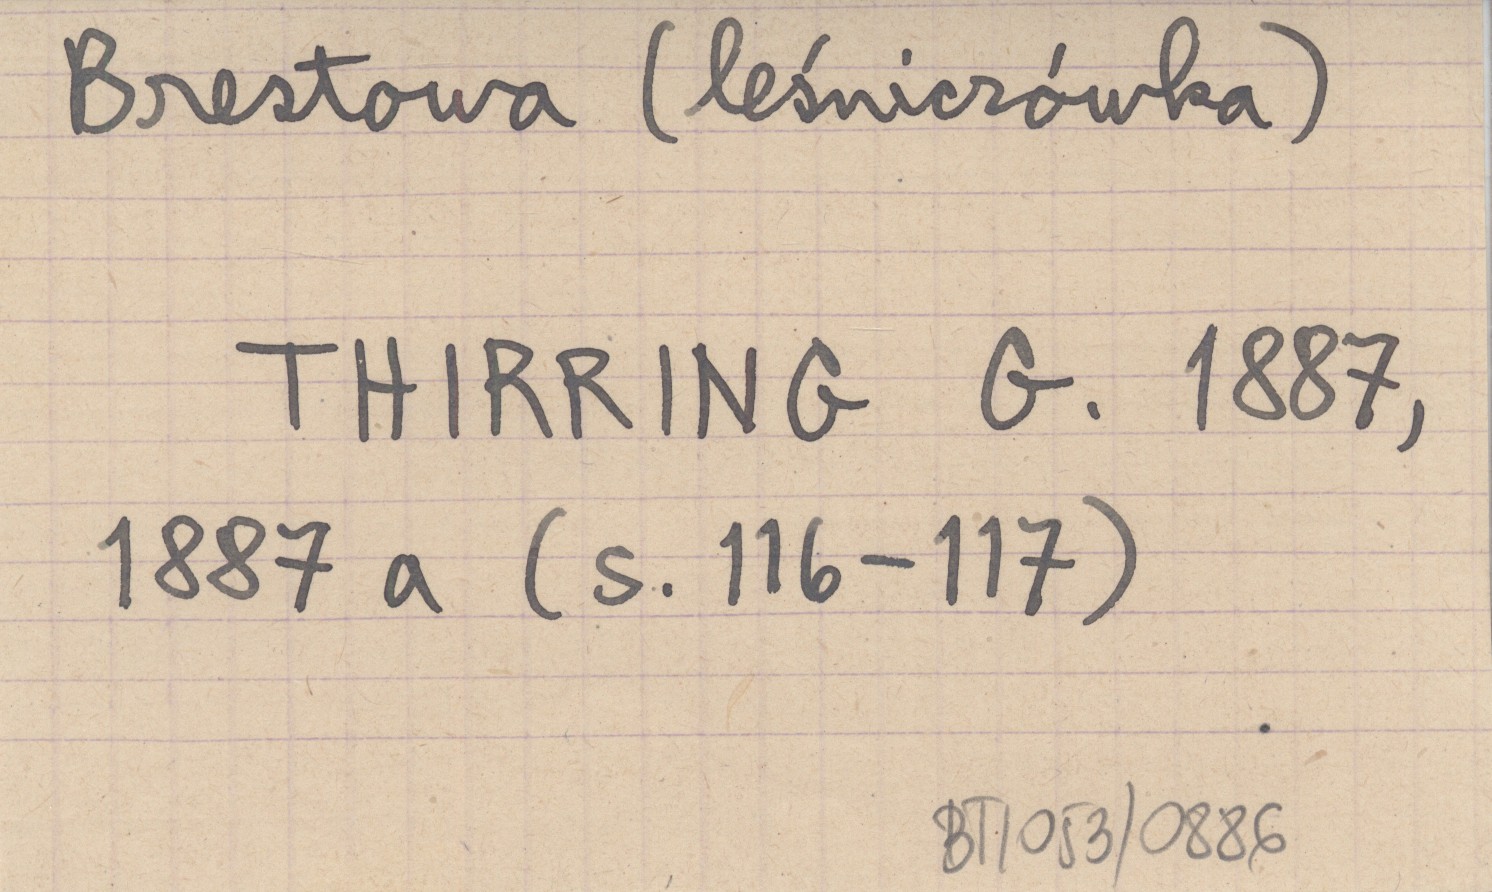 Brestowa (leśniczówka)
THIRRING G. 1887,
1887 a (s. 116-117)
BT/053/0886